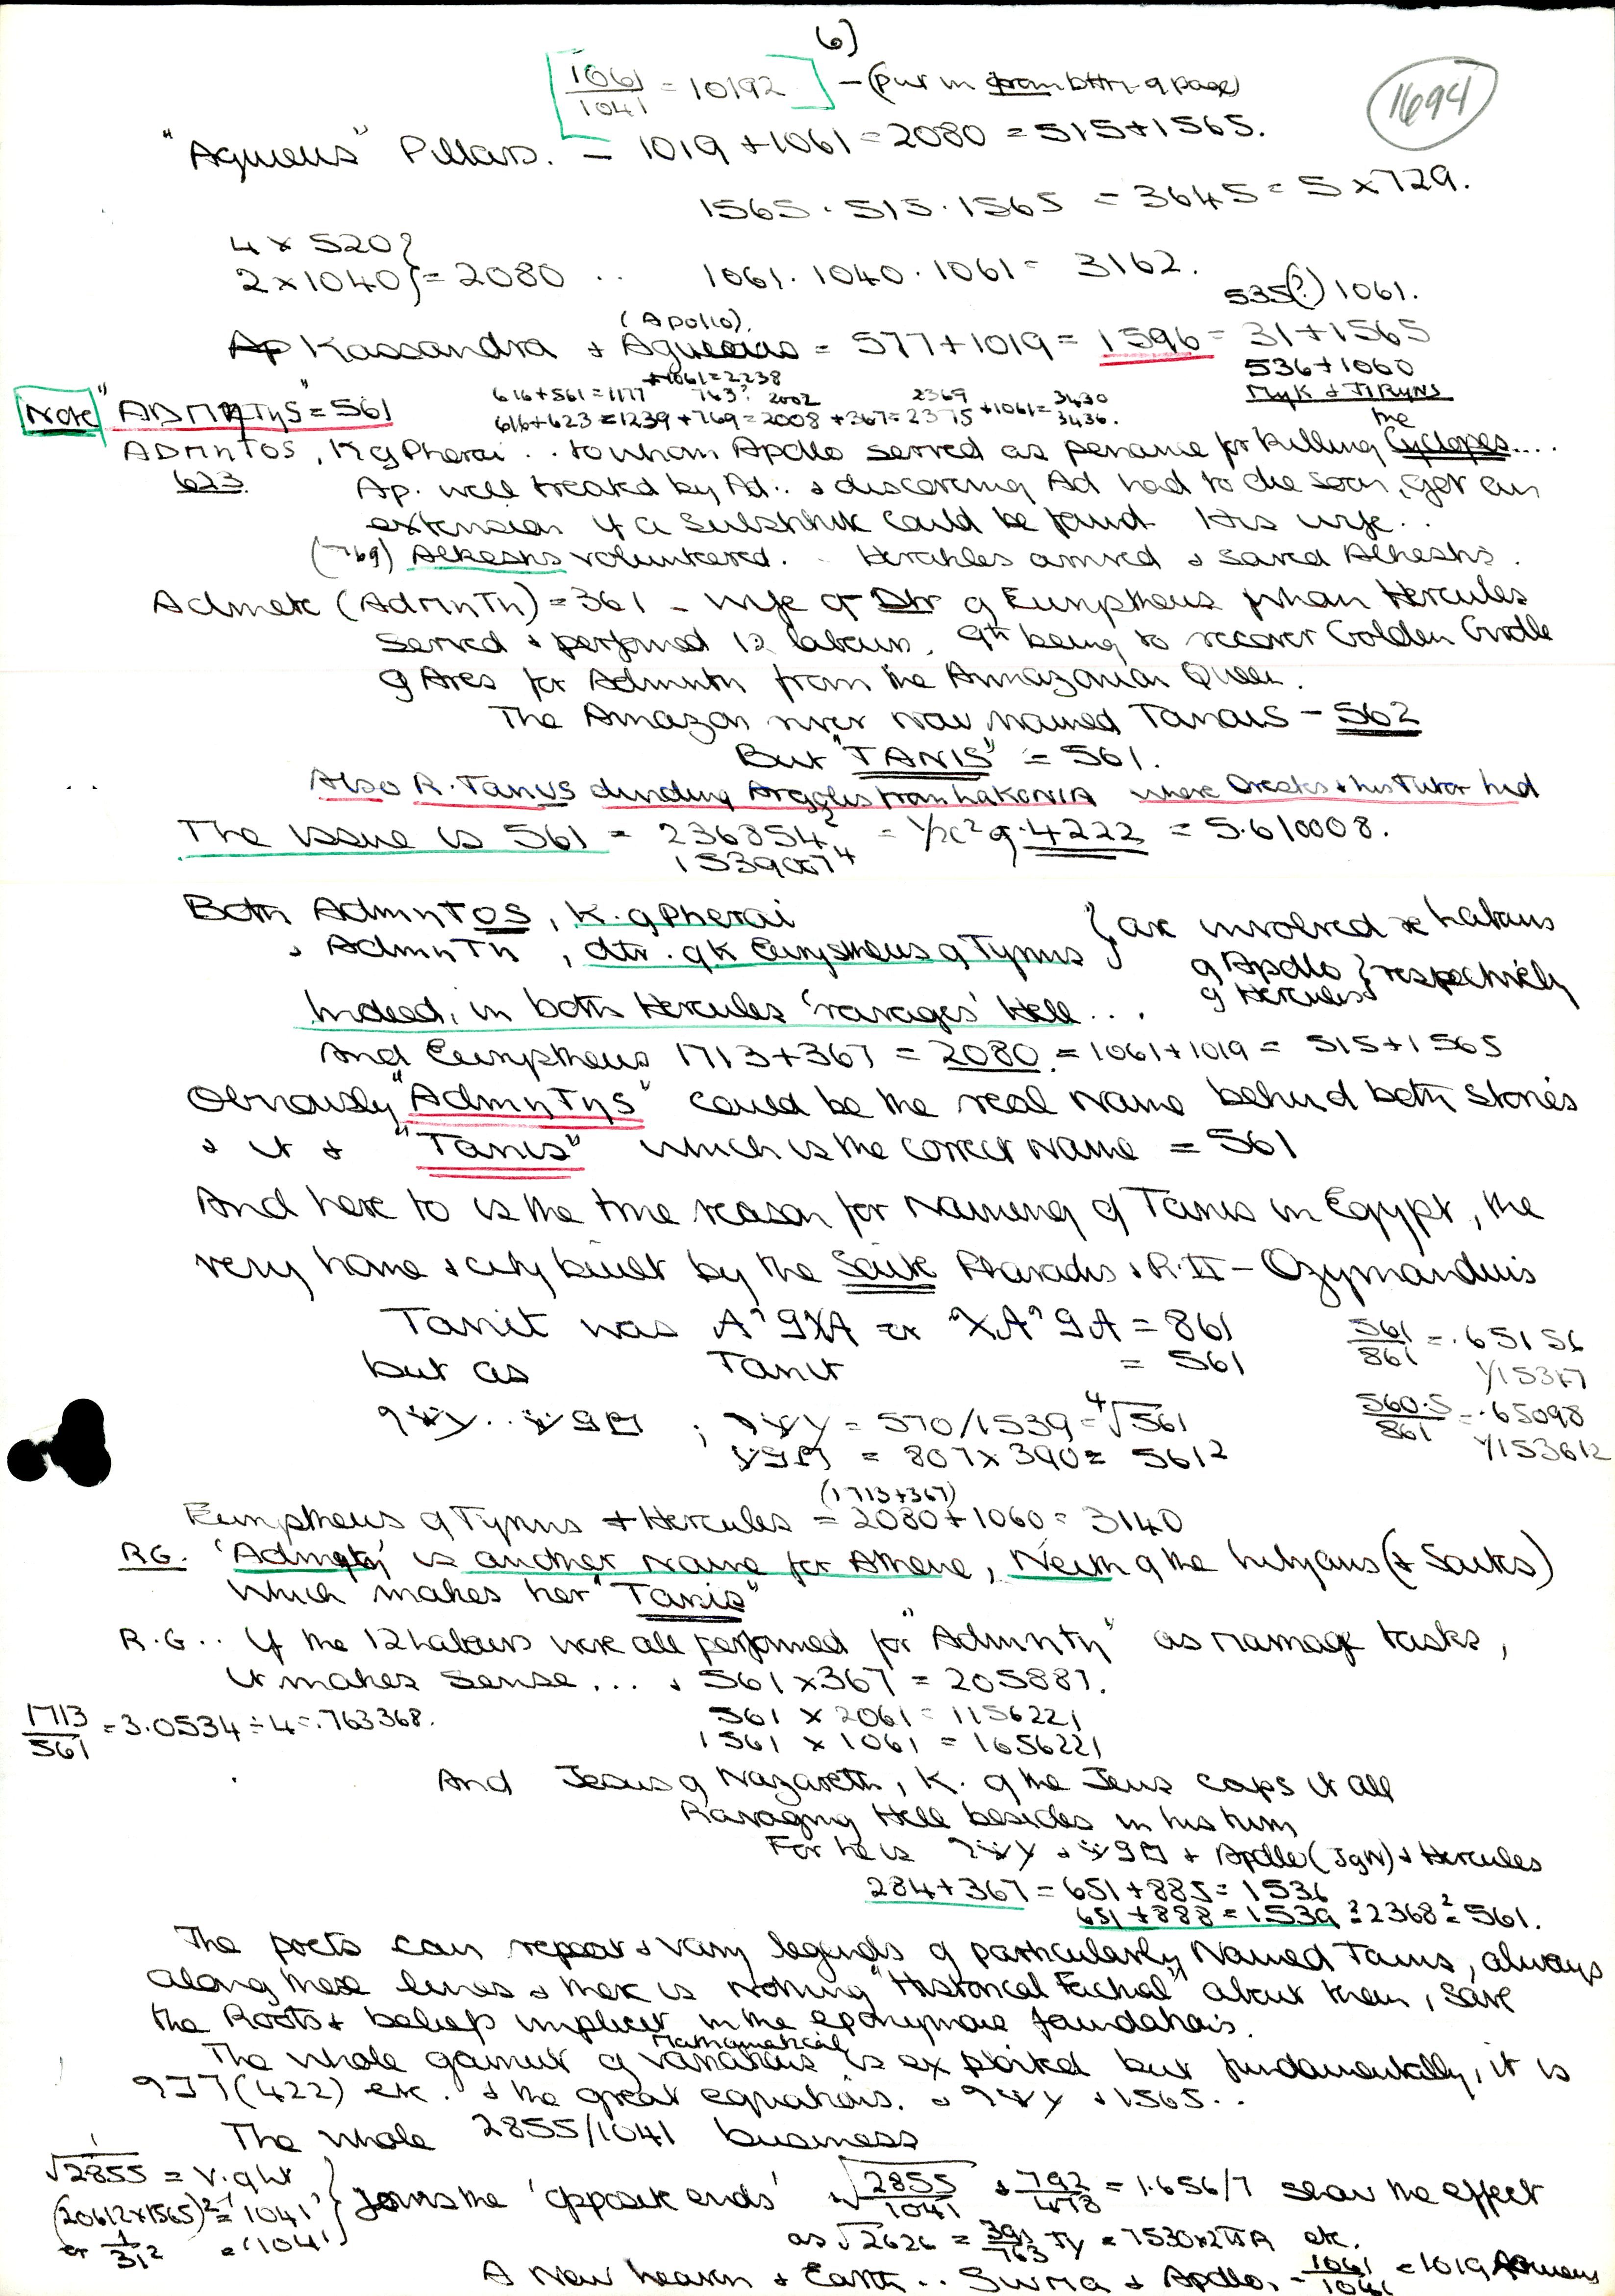 6)
1061/1041 = 10192 - (put in from bttm of page)
1694
"Agueus" Pillars. - 1019 + 1061 = 2080 = 515 + 1565.
1565 . 515 . 1565 = 3645 = 5 x 729.
4 x 520 }
2 x 1040 } = 2080 .. 1061 . 1040 . 1061 = 3162.
535(?) 1061.
(Apollo).
Ap Kassandra + Agueus = 577 + 1019 = 1596 = 31 + 1565
+1061 = 2238
536 + 1060
Myk & Tiryns
616 + 561 = 1177 763? 2002 2369 3430
616 + 623 = 1239 + 769 = 2008 + 367 = 2375 + 1061 = 3436.
Note "ADMηTηS" = 561
ADMηTOS, K of Pherai .. to whom Apollo served as penance for killing the Cyclopes....
623 Ap. well treated by Ad .. & discovering Ad had to die soon, got an
extension if a substitute could be found. His wife ..
(769) Alkestis volunteered. .. Herakles arrived & saved Alkestis.
Admete (AdMηTη) = 361 - wife of Dtr of Eurystheus for whom Hercules
served & performed 12 labours, 9th being to recover Golden Girdle
of Ares for Admηtη from the Ammazonian Queen.
The Amazon river now named Tanais - 562
But "TANIS" = 561.
Also R. Tanus dividing Argolis from LAKONIA where Orestes & his Tutor hid
The issue is 561 = 236854² = 1/x² of .4222 = 5.610008.
1539007⁴
Both AdmηTOS, K. of Pherai } are involved re Labours
& AdmηTη, dtr. of K Eurystheus of Tyrins } of Apollo } respectively
of Hercules }
Indeed, in both Hercules 'ravages' Hell ...
And Eurystheus 1713 + 367 = 2080 = 1061 + 1019 = 515 + 1565
Obviously "AdmηTηS" could be the real name behind both stories
& it & "Tanis" which is the correct name = 561
And here to is the true reason for Naming of Tanis in Egypt, the
very home & city built by the Saite Pharaohs & R.II - Ozymandias
Tanit was = 861
561/861 = .65156
but as Tanit = 561
1/15347
= 570/1539 = ⁴√561
560.5/861 = .65098
= 807 x 390 = 561²
1/153612
(1713 + 367)
Eurystheus of Tyrins + Hercules = 2080 + 1060 = 3140
RG. 'Admηtη' is another name for Athene, Neith of the Libyans (& Saites)
which makes her "Tanis"
R.G .. If the 12 Labours were all performed for "Admηtη" as marriage tasks,
it makes sense ... & 561 x 367 = 205887.
1713/561 = 3.0534 ÷ 4 = .763368.
561 x 2061 = 1156221
1561 x 1061 = 1656221
And Jesus of Nazareth, K. of the Jews caps it all
Ravaging Hell besides in his turn
For he is & + Apollo (J of N) & Hercules
284 + 367 = 651 + 885 = 1536
651 + 888 = 1539 = 2368² = 561.
The poets can repeat & vary legends of particularly Named Towns, always
along these lines & there is nothing "Historical Factual" about them, save
the Roots & beliefs implicit in the eponymous foundations.
Mathematical
The whole gamut of variations is exploited but fundamentally, it is
(422) etc. & the great equations. & & 1565 ..
The whole 2855/1041 business
√2855 =
(20612 x 1565)² = 1041 } joins the 'opposite ends' √2855/1041 & 792/478 = 1.656/7 show the effect
or 1/31² = '1041
as √2626 = 
etc.
A New heaven & Earth .. & Apollo. - 1061/1041 = 1019